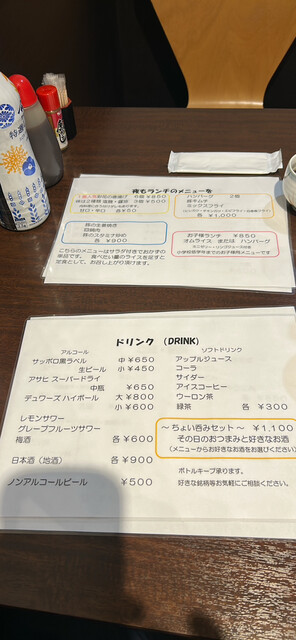 夜もランチのメニューを
6個 ¥650
3個 ¥500
甘口・辛口 各¥50
ハンバーグ 2種
豚キムチ
ミックスフライ
各 ¥1,000
豚の生姜焼き
豚のスタミナ炒め
各 ¥900
お子様ランチ ¥850
オムライス または ハンバーグ
こちらのメニューはサラダ付きでおかずの
単品です。 食べたい量のライスを足すと
定食として、お召し上がり頂けます。
ドリンク (DRINK)
アルコール
サッポロ黒ラベル 中 ¥650
生ビール 小 ¥450
アサヒ スーパードライ
中瓶 ¥650
デュワーズ ハイボール 大 ¥800
小 ¥600
レモンサワー
グレープフルーツサワー
梅酒 各 ¥600
日本酒（地酒） 各 ¥900
ノンアルコールビール ¥500
ソフトドリンク
アップルジュース
コーラ
サイダー
アイスコーヒー
ウーロン茶
緑茶 各 ¥300
～ちょい呑みセット～ ¥1,100
その日のおつまみと好きなお酒
(メニューからお好きなお酒をお選びください)
ボトルキープ承ります。
好きな銘柄等お気軽にご相談ください。